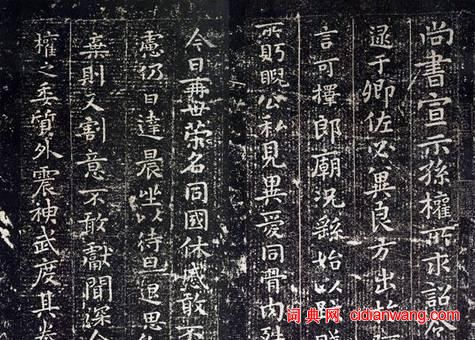 尚書宣示孫權所求詔令
逮于卿佐必冀良方出於
言可擇郎廟況繇始以疏賤
所眄睨公私見異愛同骨肉殊
今日再世榮名同國休慼敢不
慮仍日達晨坐以待旦退思
棄則又割意不敢獻聞深念
權之委質外震神武度其拳
词典网 cidianwang.com